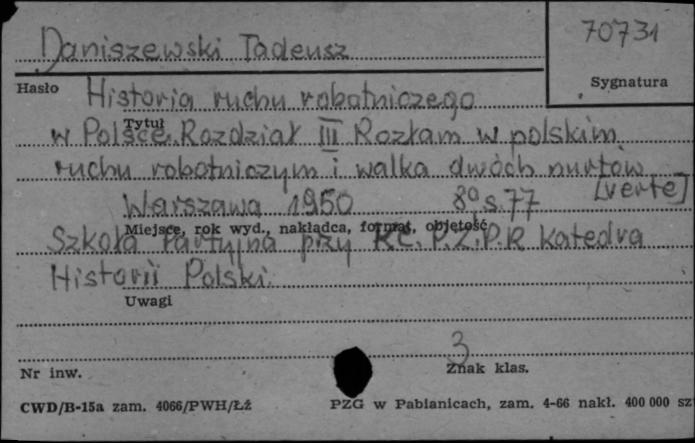 Daniszewski Tadeusz
70731
Hasło
Sygnatura
Historia ruchu robotniczego
Tytuł
w Polsce. Rozdział III Rozłam w polskim
ruchu robotniczym i walka dwóch nurtów
[verte]
Warszawa 1950 8º s. 77
Miejsce, rok wyd., nakładca, format, objętość
Szkoła Partyjna przy KC. P.Z.P.R Katedra
Historii Polski.
Uwagi
3
Nr inw.
Znak klas.
CWD/B-15a zam. 4066/PWH/Łż
PZG w Pabianicach, zam. 4-66 nakł. 400 000 sz